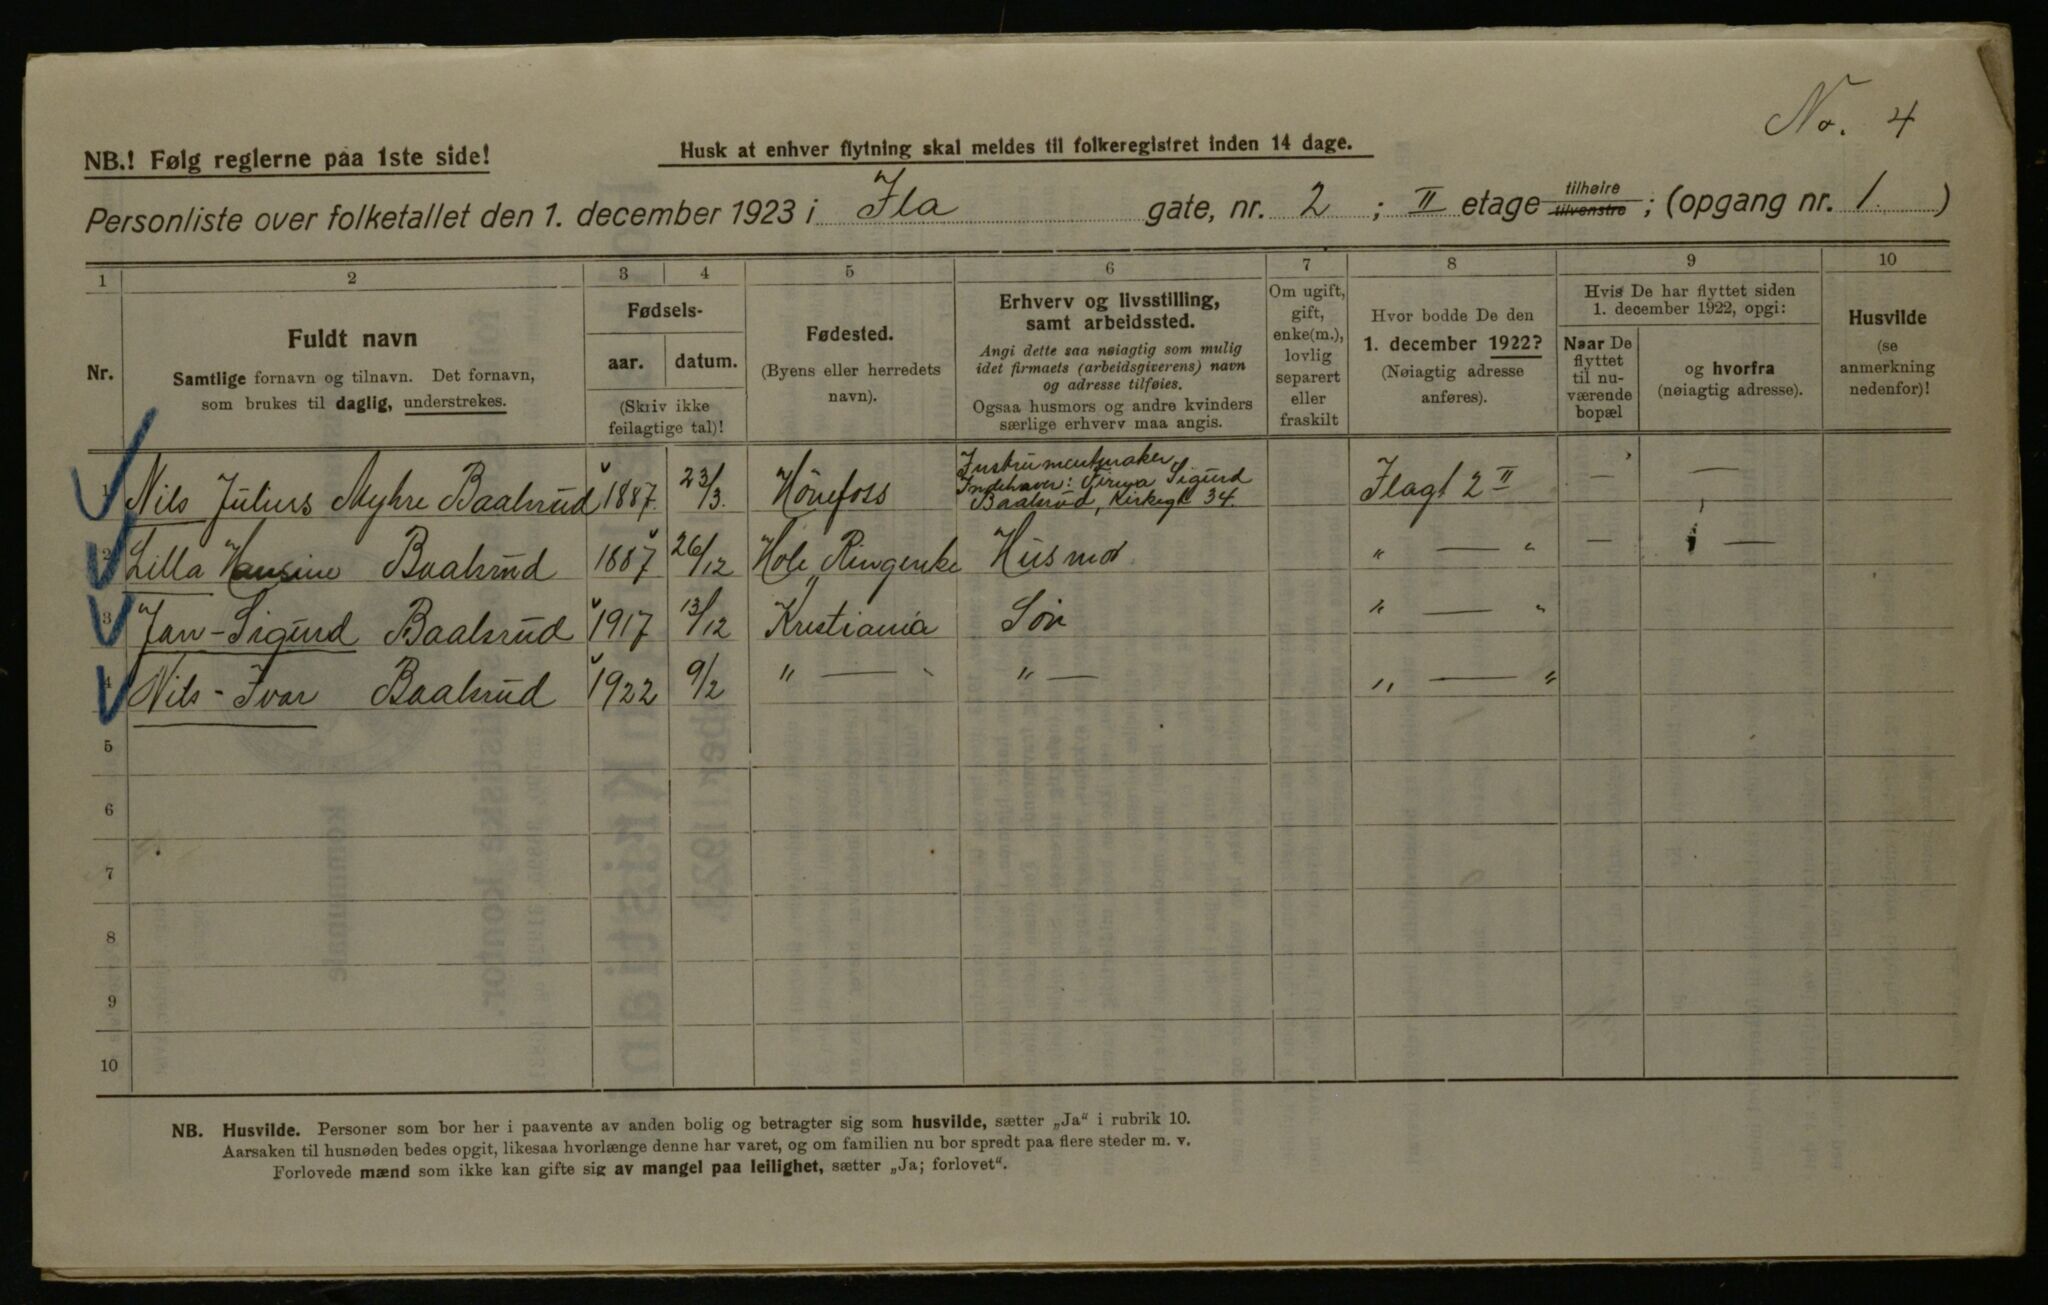 No. 4
NB.! Følg reglerne paa 1ste side!
Husk at enhver flytning skal meldes til folkeregistret inden 14 dage.
Personliste over folketallet den 1. december 1923 i Ila gate, nr. 2 ; II etage tilhøire tilvenstre ; (opgang nr. 1. )
1 2 3 4 5 6 7 8 9 10
Nr.
Fuldt navn
Samtlige fornavn og tilnavn. Det fornavn,
som brukes til daglig, understrekes.
Fødsels-
aar. datum.
(Skriv ikke
feilagtige tal)!
Fødested.
(Byens eller herredets
navn).
Erhverv og livsstilling,
samt arbeidssted.
Angi dette saa nøiagtig som mulig
idet firmaets (arbeidsgiverens) navn
og adresse tilføies.
Ogsaa husmors og andre kvinders
særlige erhverv maa angis.
Om ugift,
gift,
enke(m.),
lovlig
separert
eller
fraskilt
Hvor bodde De den
1. december 1922?
(Nøiagtig adresse
anføres).
Hvis De har flyttet siden
1. december 1922, opgi:
Naar De
flyttet
til nu-
værende
bopæl
og hvorfra
(nøiagtig adresse).
Husvilde
(se
anmerkning
nedenfor)!
1 Nils Julius Myhre Baalsrud 1887. 23/3. Hönefoss Instrumentmaker Indehaver: Firma Sigurd Baalsrud, Kirkegt 34. Ilagt 2 II — —
2 Lilla Hansine Baalsrud 1887 26/12 Hole Ringerike Husmor " — " — —
3 Jan-Sigurd Baalsrud 1917 13/12 Kristiania Søn " — "
4 Nils-Ivar Baalsrud 1922 9/2 " — " — " — "
5
6
7
8
9
10
NB. Husvilde. Personer som bor her i paavente av anden bolig og betragter sig som husvilde, sætter „Ja“ i rubrik 10.
Aarsaken til husnøden bedes opgit, likesaa hvorlænge denne har varet, og om familien nu bor spredt paa flere steder m. v.
Forlovede mænd som ikke kan gifte sig av mangel paa leilighet, sætter „Ja; forlovet“.